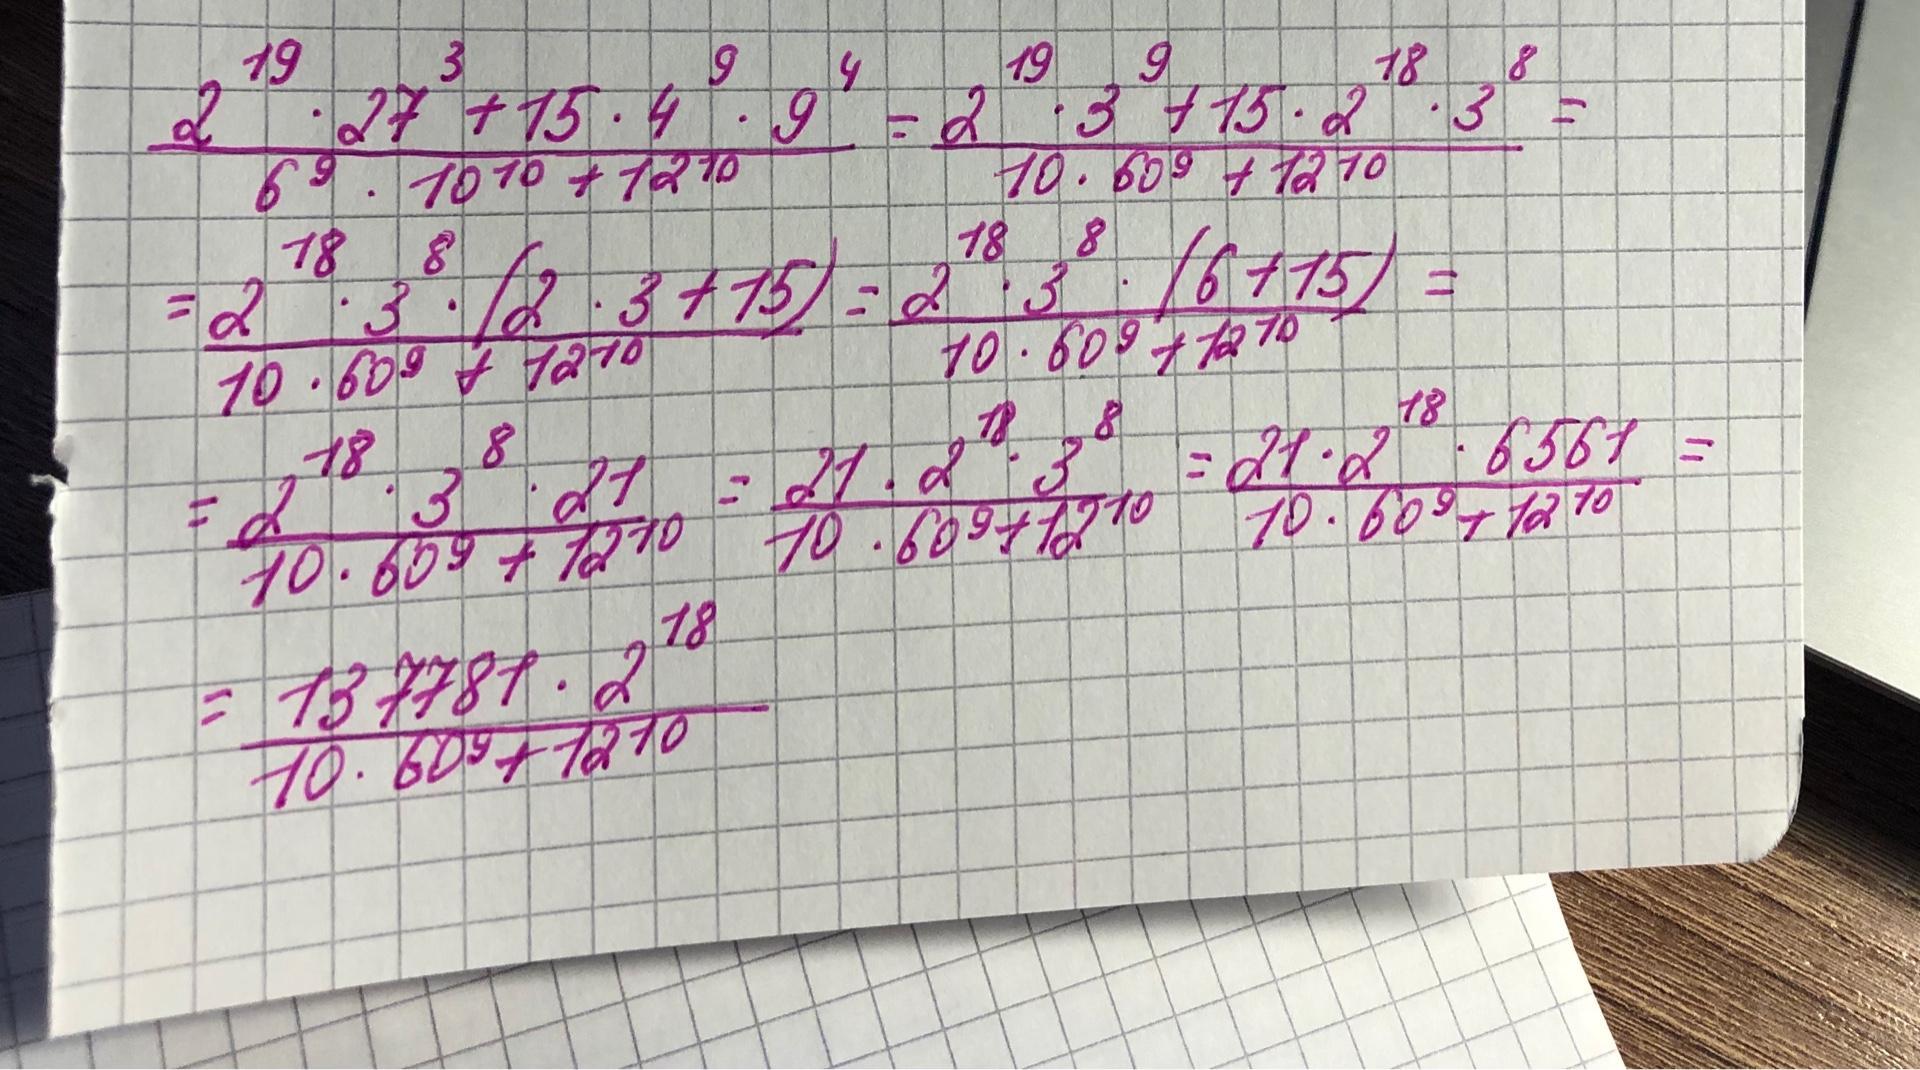 2¹⁹ · 27³ + 15 · 4⁹ · 9⁴ / 6⁹ · 10¹⁰ + 12¹⁰ = 2¹⁹ · 3⁹ + 15 · 2¹⁸ · 3⁸ / 10 · 60⁹ + 12¹⁰ =
= 2¹⁸ · 3⁸ · (2 · 3 + 15) / 10 · 60⁹ + 12¹⁰ = 2¹⁸ · 3⁸ · (6 + 15) / 10 · 60⁹ + 12¹⁰ =
= 2¹⁸ · 3⁸ · 21 / 10 · 60⁹ + 12¹⁰ = 21 · 2¹⁸ · 3⁸ / 10 · 60⁹ + 12¹⁰ = 21 · 2¹⁸ · 6561 / 10 · 60⁹ + 12¹⁰ =
= 137781 · 2¹⁸ / 10 · 60⁹ + 12¹⁰